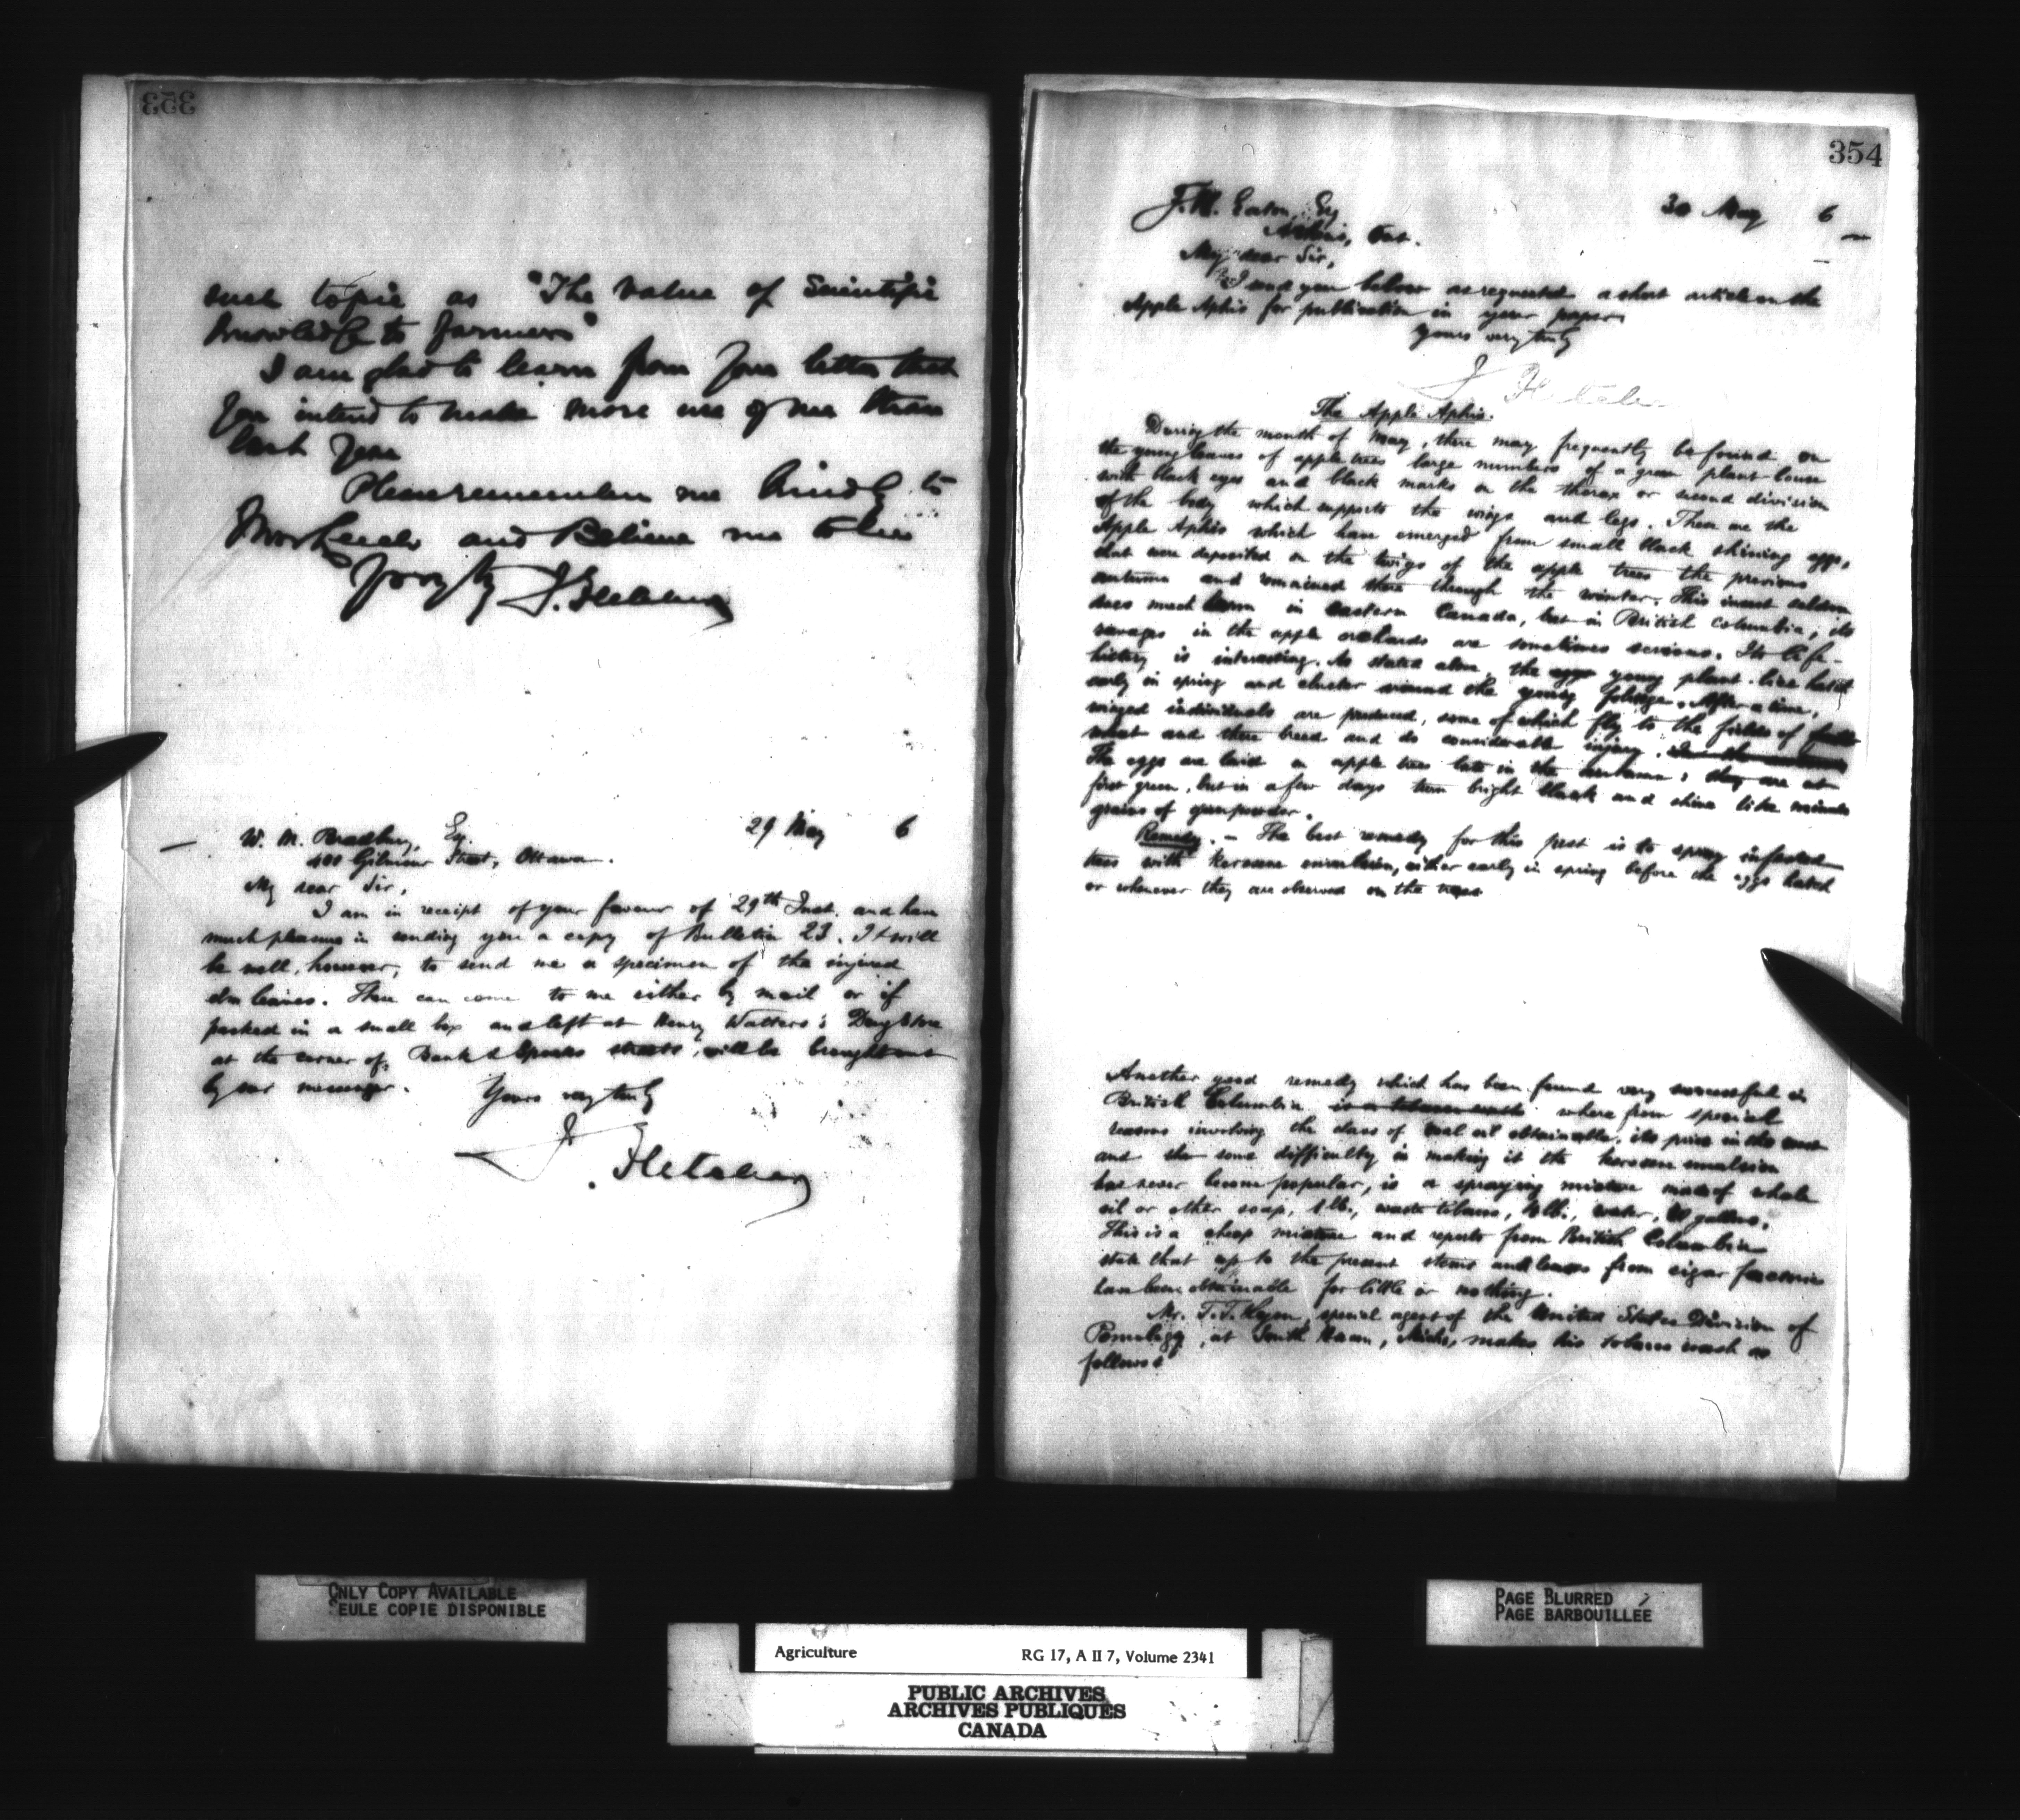 353
such topic as "The Value of Scientific
Knowledge to farmers"
I am glad to learn from your letter that
you intend to make more use of me than
last year
Please remember me kindly to
and Believe me to be
J. Fletcher
W. M. Bradbury, Esq. 29 May 6
400 Gilmour Street, Ottawa.
My dear Sir,
I am in receipt of your favour of 29th Inst. and have
much pleasure in sending you a copy of Bulletin 23. It will
be well, however, to send me a specimen of the injured
elm leaves. These can come to me either by mail or if
packed in a small box and left at Henry Watters's Drug Store
at the corner of Bank & Sparks streets, will be brought out
by our messenger.
Yours very truly
J. Fletcher
354
30 May 6
Esq
Ont.
My dear Sir,
I send you below as requested a short article on the
Apple Aphis for publication in your paper.
Yours very truly
J Fletcher
The Apple Aphis.
During the month of May, there may frequently be found on
the young leaves of apple trees large numbers of a green plant-louse
with black eyes and black marks on the thorax or second division
of the body which supports the wings and legs. These are the
Apple Aphis which have emerged from small black shining eggs,
that were deposited on the twigs of the apple trees the previous
autumn and remained there through the winter. This insect seldom
does much harm in Eastern Canada, but in British Columbia, its
ravages in the apple orchards are sometimes serious. Its life-
history is interesting. As stated above, the eggs young plant-lice hatch
early in spring and cluster around the young foliage. After a time,
winged individuals are produced, some of which fly to the fields of
wheat and there breed and do considerable injury.
The eggs are laid on apple trees late in the autumn; they are at
first green, but in a few days turn bright black and shine like minute
grains of gunpowder.
Remedy. – The best remedy for this pest is to spray infested
trees with kerosene emulsion, either early in spring before the eggs hatch
or whenever they are observed on the trees
Another good remedy which has been found very successful in
British Columbia where from special
reasons involving the class of coal oil obtainable, its price in the
and also some difficulty in making it the kerosene emulsion
has never become popular, is a spraying mixture made of whale
oil or other soap, 1 lb., waste tobacco, lb., water, gallons.
This is a cheap mixture and reports from British Columbia
state that up to the present stems and leaves from cigar factories
have been obtainable for little or nothing.
Mr. T. T. Lyon, special agent of the United States Division of
Pomology, at South Haven, Mich., makes his tobacco wash as
follows:
ONLY COPY AVAILABLE
SEULE COPIE DISPONIBLE
PAGE BLURRED
PAGE BARBOUILLEE
Agriculture RG 17, A II 7, Volume 2341
PUBLIC ARCHIVES
ARCHIVES PUBLIQUES
CANADA